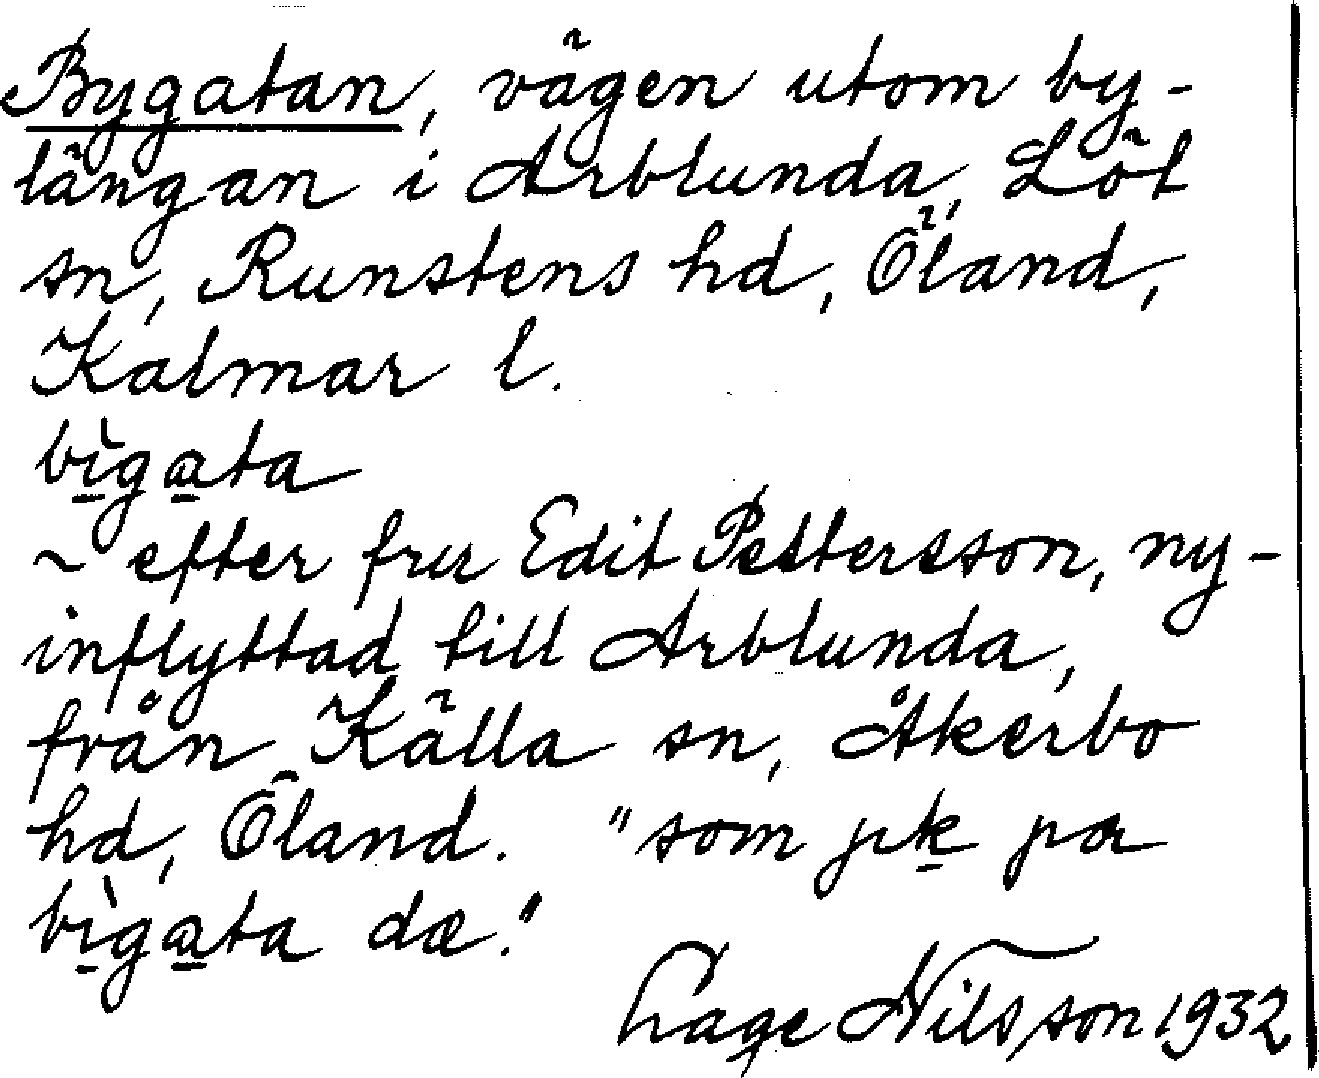 Bygatan, vägen utom by-
längan i Arblunda, Löt
sn, Runstens hd, Öland,
Kalmar l.
bı̱̀ga̱ta
~ efter fru Edit Pettersson, ny-
inflyttad till Arblunda,
från Källa sn, Åkerbo
hd, Öland. "som jıḵ pa
bı̱̀ga̱ta dæ."
Lage Nilsson 1932